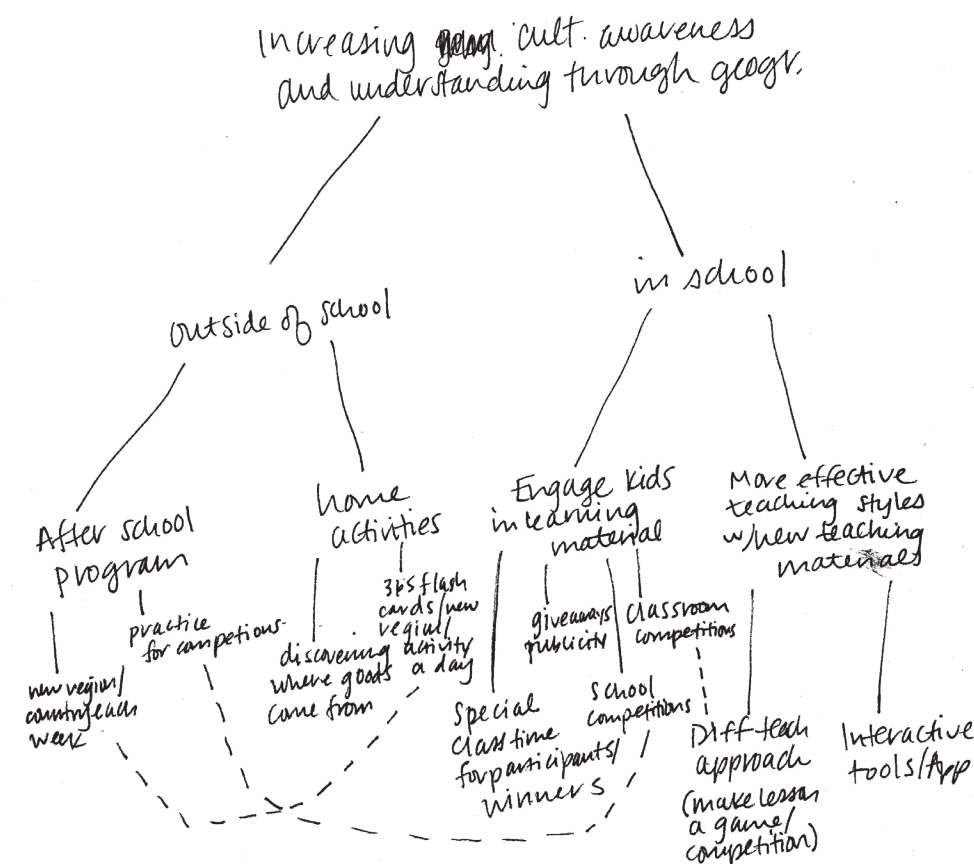 Increasing cult. awareness
and understanding through geogr.
outside of school
in school
After school
program
home
activities
Engage kids
in learning
material
More effective
teaching styles
w/new teaching
materials
new region/
country each
week
practice
for competions
discovering
where goods
come from
365 flash
cards/new
region/
activity
a day
Special
class time
for participants/
winners
giveaways
publicity
school
competitions
classroom
competitions
Diff teach
approach
(make lesson
a game/
competition)
Interactive
tools/App